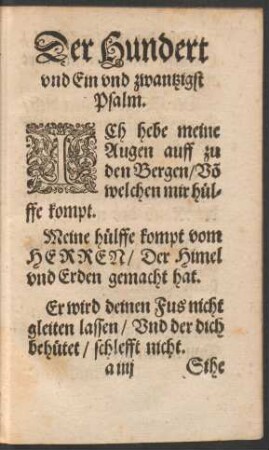 Der Hundert
vnd Ein vnd zwantzigst
Psalm.
ICh hebe meine
Augen auff zu
den Bergen/Võ
welchen mir hül-
ffe kompt.
Meine hülffe kompt vom
HERREN/ Der Himel
vnd Erden gemacht hat.
Er wird deinen Fus nicht
gleiten lassen/ Vnd der dich
behütet/ schlefft nicht.
a iiij Sihe